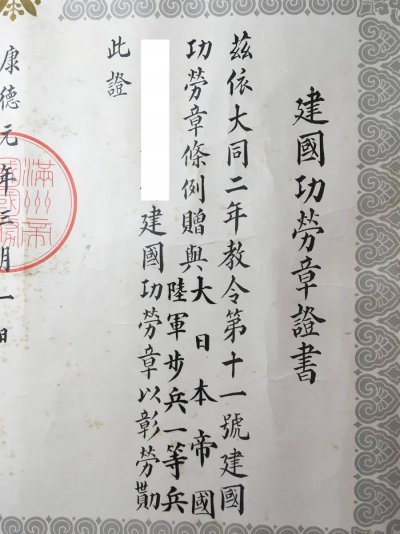 建國功勞章證書
茲依大同二年教令第十一號建國
功勞章條例贈與大日本帝國
陸軍步兵一等兵
建國功勞章以彰勞勩
此證
康德元年三月一日
滿州帝